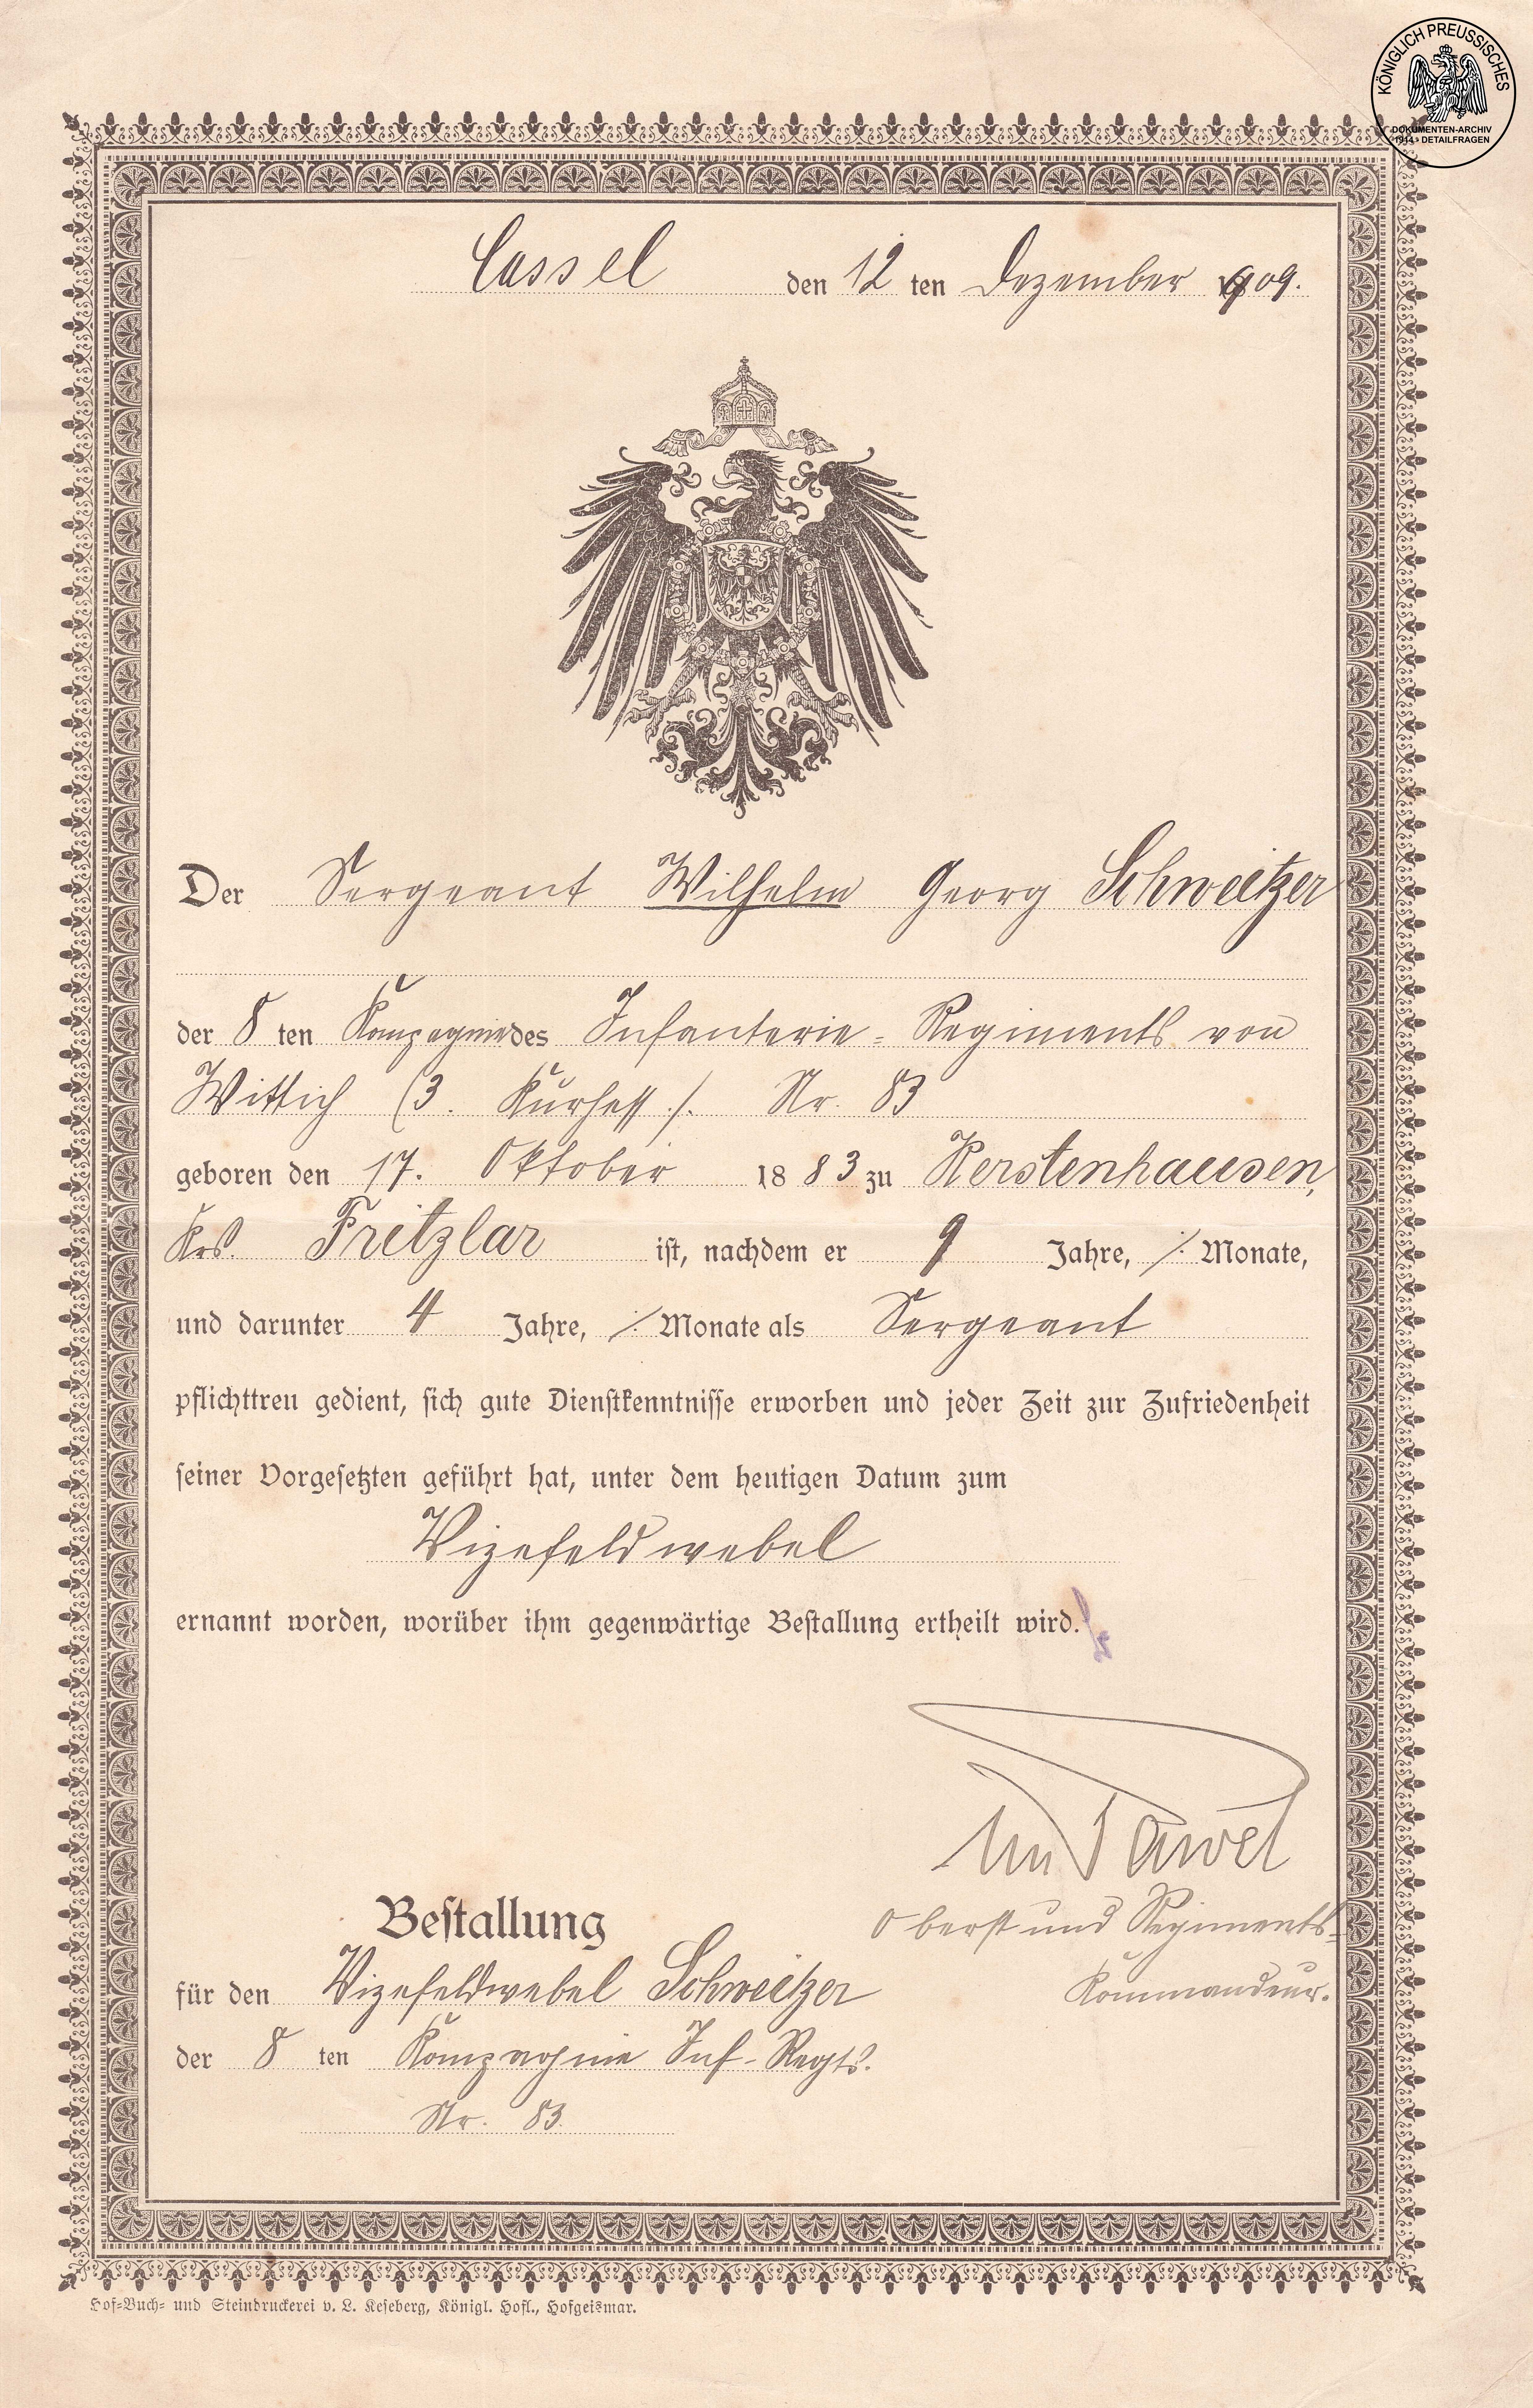 KÖNIGLICH PREUSSISCHES
DOKUMENTEN-ARCHIV
1914 · DETAILFRAGEN
Cassel den 12 ten Dezember 1909.
Der Sergeant Wilhelm Georg Schweitzer
der 8 ten Kompagnie des Infanterie-Regiments von
Wittich (3. Kurhess.). Nr. 83
geboren den 17. Oktober 1883 zu Kerstenhausen,
Krs. Fritzlar ist, nachdem er 9 Jahre, ⁒ Monate,
und darunter 4 Jahre, ⁒ Monate als Sergeant
pflichttreu gedient, sich gute Dienstkenntnisse erworben und jeder Zeit zur Zufriedenheit
seiner Vorgesetzten geführt hat, unter dem heutigen Datum zum
Vizefeldwebel
ernannt worden, worüber ihm gegenwärtige Bestallung ertheilt wird.
Pawel
Oberst und Regiments-
Kommandeur.
Bestallung
für den Vizefeldwebel Schweitzer
der 8 ten Kompagnie Inf-Regts.
Nr. 83.
Hof-Buch- und Steindruckerei v. L. Keseberg, Königl. Hofl., Hofgeismar.